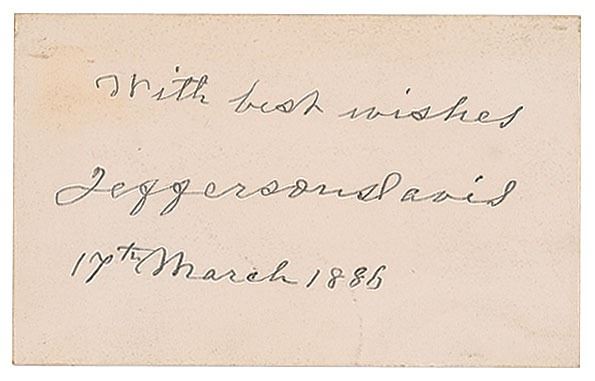 With best wishes
Jefferson Davis
17th March 1886